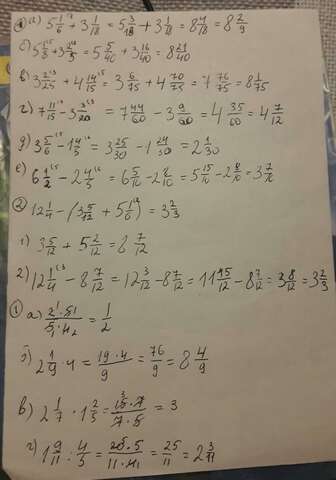 ① а) 5 1/6 + 3 1/18 = 5 3/18 + 3 1/18 = 8 4/18 = 8 2/9
б) 5 1/8 + 3 2/5 = 5 5/40 + 3 16/40 = 8 21/40
в) 3 2/25 + 4 14/15 = 3 6/75 + 4 70/75 = 7 76/75 = 8 1/75
г) 7 11/15 - 3 3/20 = 7 44/60 - 3 9/60 = 4 35/60 = 4 7/12
д) 3 5/6 - 1 4/5 = 3 25/30 - 1 24/30 = 2 1/30
е) 6 1/2 - 2 4/5 = 6 5/10 - 2 8/10 = 5 15/10 - 2 8/10 = 3 7/10
② 12 1/4 - (3 5/12 + 5 1/6) = 3 2/3
1) 3 5/12 + 5 2/12 = 8 7/12
2) 12 1/4 - 8 7/12 = 12 3/12 - 8 7/12 = 11 15/12 - 8 7/12 = 3 8/12 = 3 2/3
① а) 2 · 51 / 51 · 42 = 1/2
б) 2 1/9 · 4 = 19 · 4 / 9 = 76/9 = 8 4/9
в) 2 1/7 · 1 2/5 = 15 · 7 / 7 · 5 = 3
г) 1 9/11 : 4/5 = 20 · 5 / 11 · 4 = 25/11 = 2 3/11